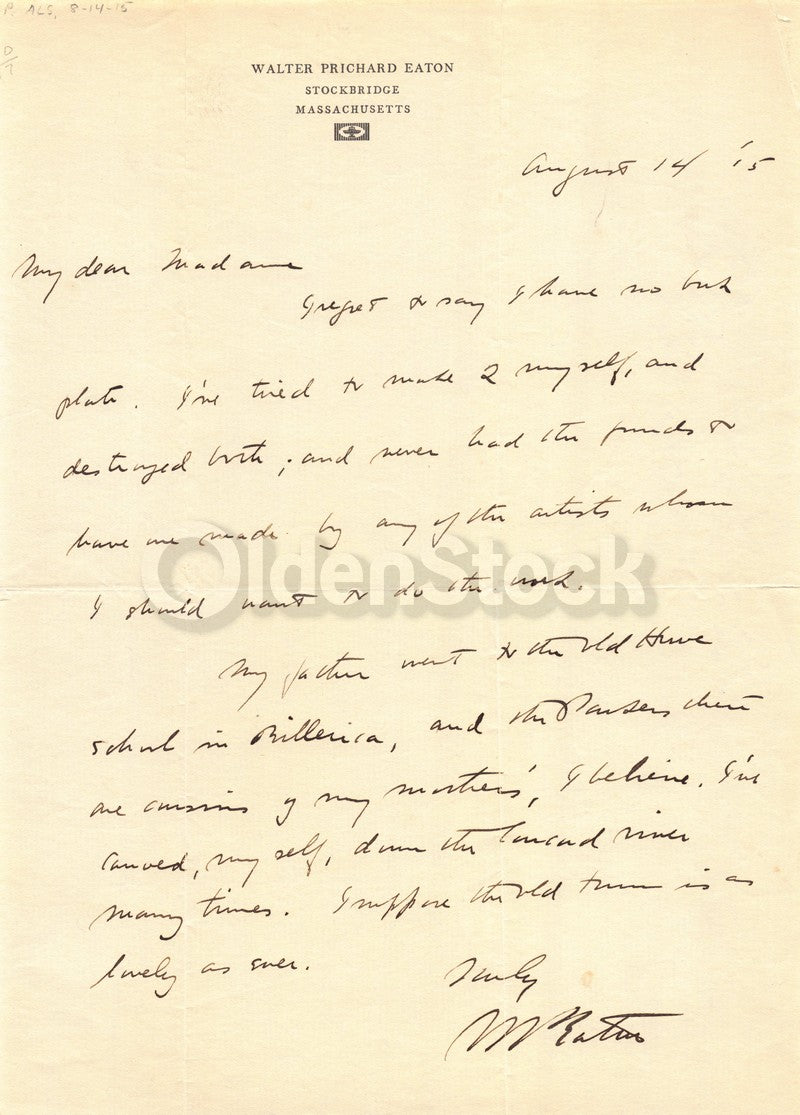 P. ALS, 8-14-15
D/7
WALTER PRICHARD EATON
STOCKBRIDGE
MASSACHUSETTS
August 14 '15
My dear Madame
I regret to say I have no book
plate. I've tried to make 2 myself, and
destroyed both; and never had the funds to
have one made by any of the artists whom
OldenStock
I should want to do the work.
My father went to the old Howe
school in Billerica, and the there
are cousins of my mother's, I believe. I've
canoed, myself, down the Concord river
many times. I suppose the old town is as
lovely as ever.
Truly
W P Eaton